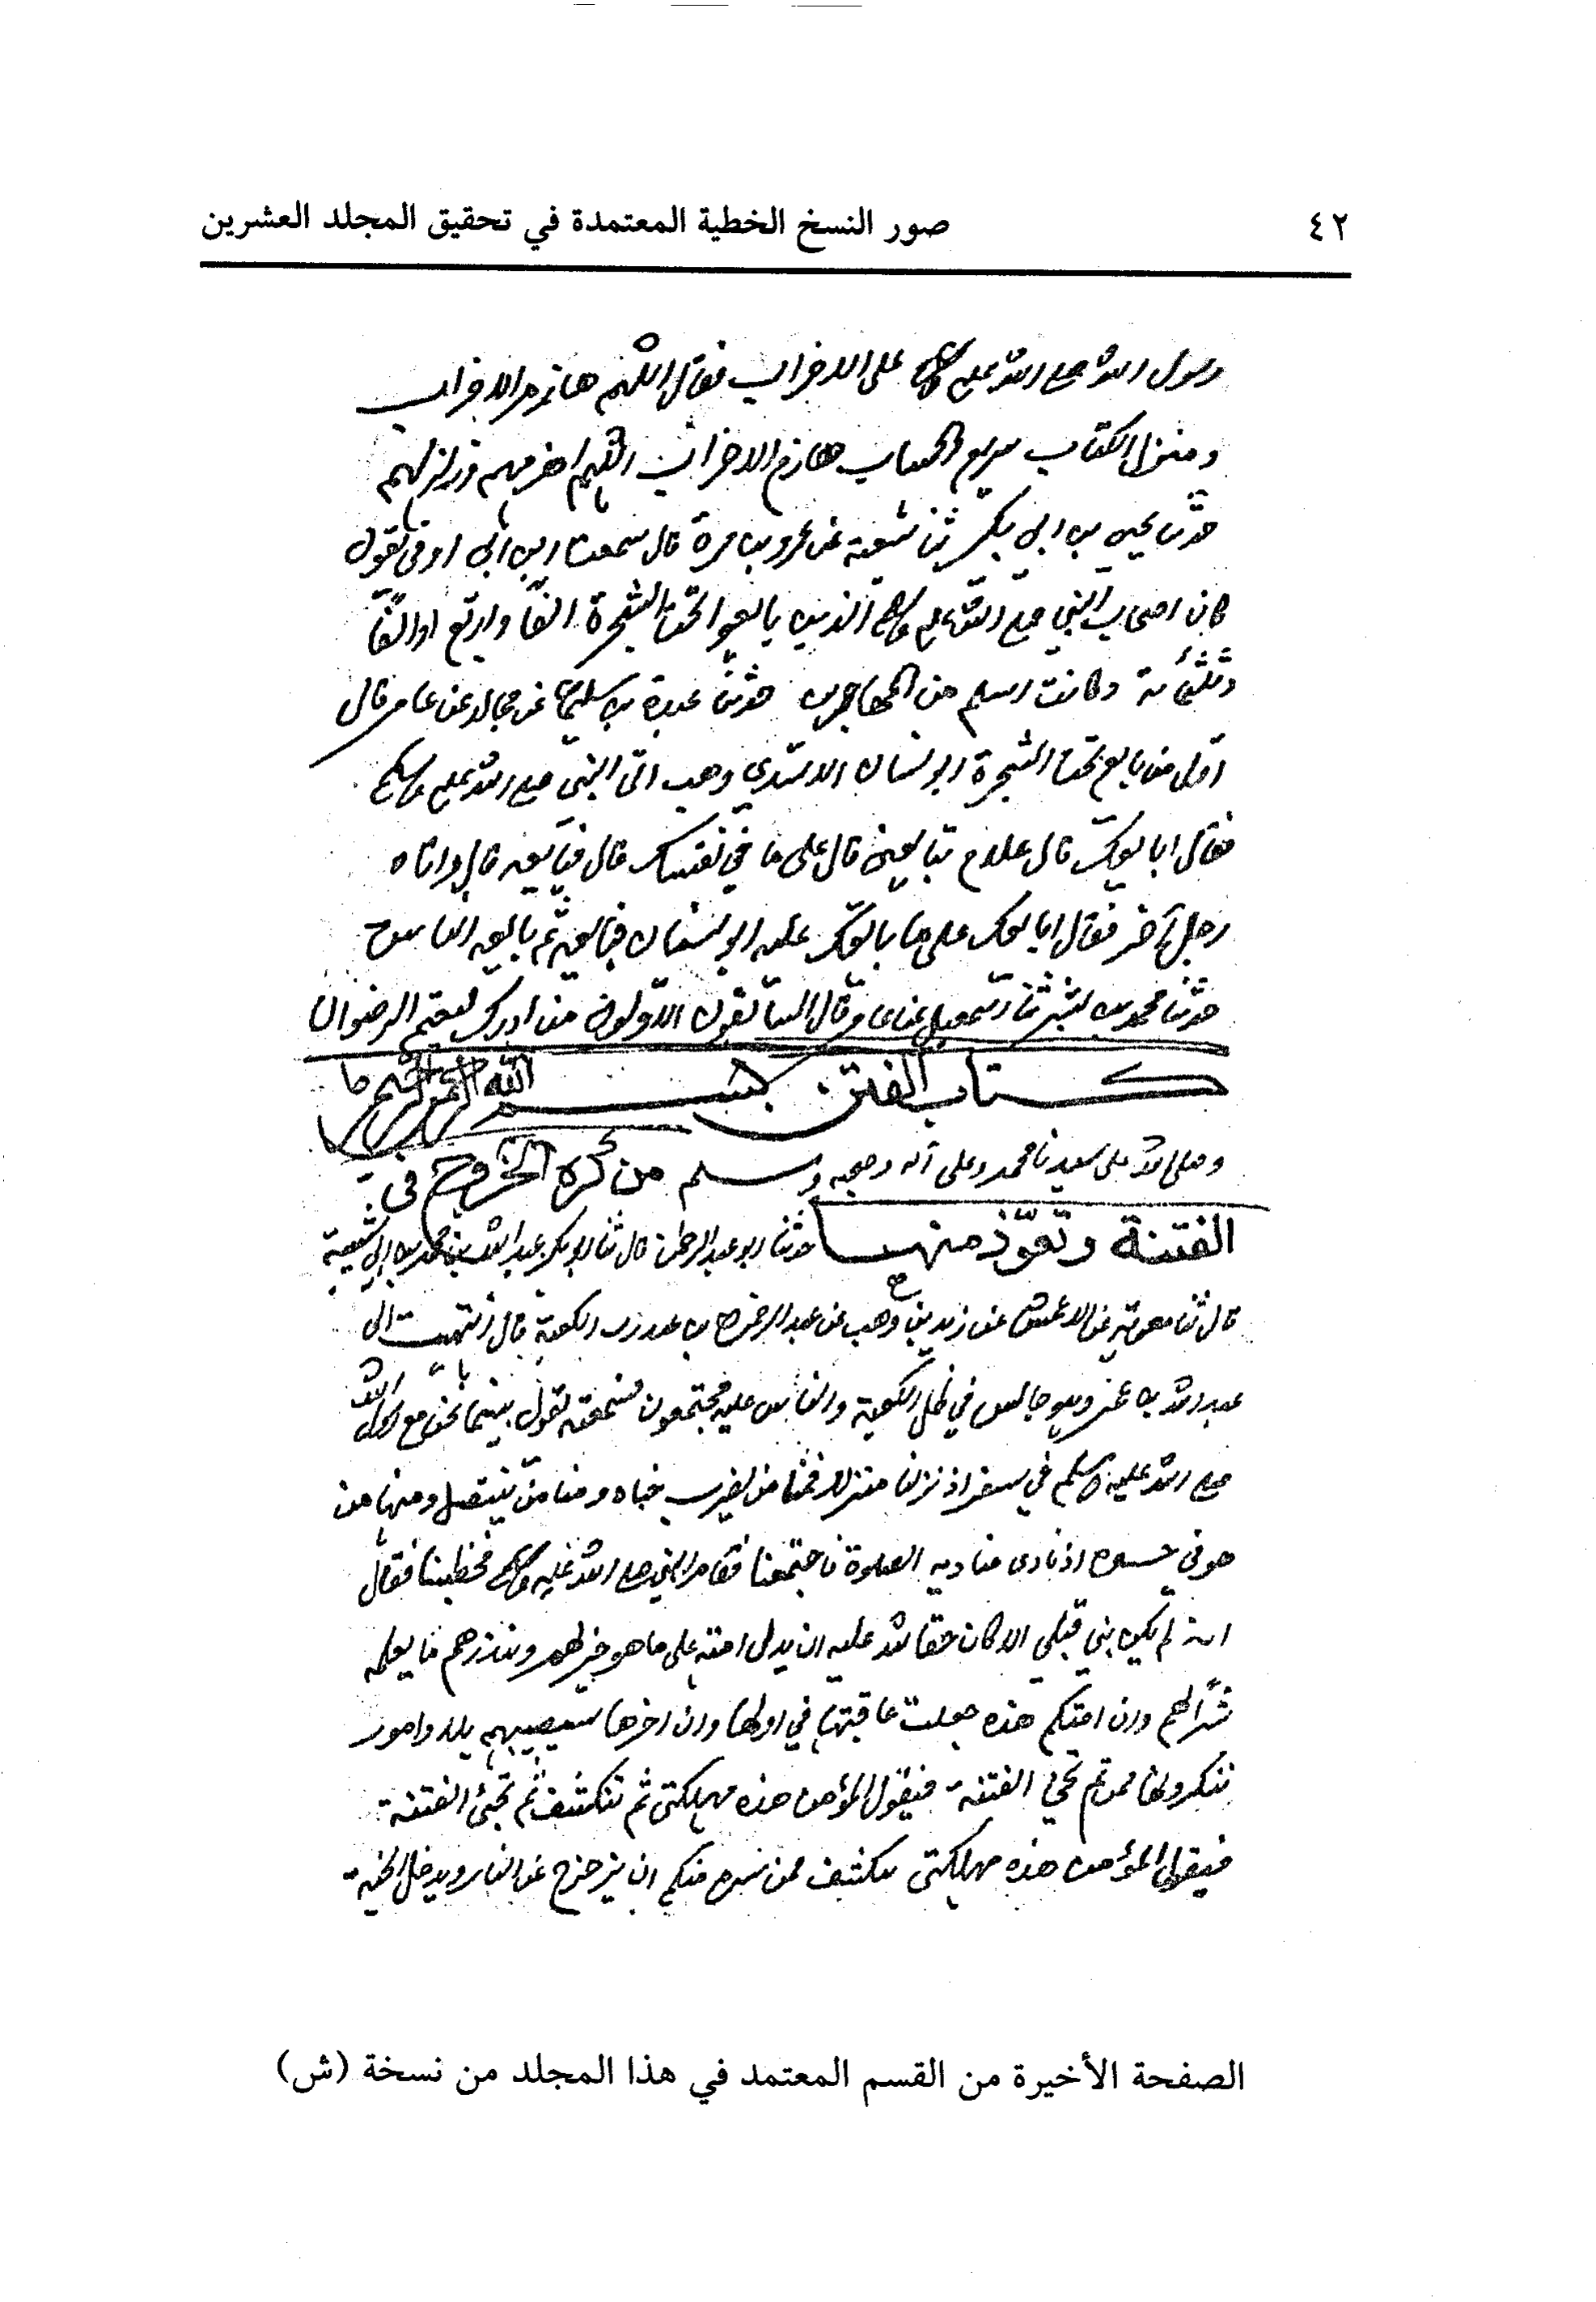 ٤٢ صور النسخ الخطية المعتمدة في تحقيق المجلد العشرين
رسول الله صلى الله عليه وسلم على الاحزاب فقال اللهم هازم الاحزاب
ومنزل الكتاب سريع الحساب هازم الاحزاب اللهم اهزمهم وزلزلهم
حدثنا يحيى بن ابي بكير ثنا شعبة عن عمرو بن مرة قال سمعت ابن ابي اوفى يقول
كان اصحاب النبي صلى الله عليه وسلم الذين بايعوا تحت الشجرة الفا واربع او الفا
وثلثمائة وكانت اسلم من المهاجرين حدثنا عبدة بن سليمان عن مجالد عن عامر قال
اول من بايع تحت الشجرة ابو سنان الاسدي وهب اتى النبي صلى الله عليه وسلم
فقال ابايعك قال علام تبايعني قال على ما في نفسك قال فبايعه قال واتاه
رجل آخر فقال ابايعك على ما بايعك عليه ابو سنان فبايعه ثم بايعه الناس
حدثنا محمد بن بشر ثنا اسمعيل عن عامر قال السابقون الاولون من ادرك بيعة الرضوان
كتاب الفتن بسم الله الرحمن الرحيم
وصلى الله على سيدنا محمد وعلى آله وصحبه وسلم من كره الخروج في
الفتنة وتعوذ منها حدثنا ابو عبد الرحمن قال ثنا ابو بكر عبد الله بن محمد بن ابي شيبة
قال ثنا معوية عن الاعمش عن زيد بن وهب عن عبد الرحمن بن عبد رب الكعبة قال انتهيت الى
عبد الله بن عمرو وهو جالس في ظل الكعبة والناس عليه مجتمعون فسمعته يقول بينما نحن مع رسول الله
صلى الله عليه وسلم في سفر اذ نزلنا منزلا فمنا من يضرب خباه ومنا من ينتضل ومنا من
هو في جشره اذ نادى مناديه الصلوة فاجتمعنا فقام النبي صلى الله عليه وسلم فخطبنا فقال
انه لم يكن نبي قبلي الا كان حقا لله عليه ان يدل امته على ما هو خير لهم وينذرهم ما يعلمه
شرا لهم وان امتكم هذه جعلت عاقبتها في اولها وان اخرها سيصيبهم بلاء وامور
تنكرونها فمن ثم تجئ الفتنة فيقول المؤمن هذه مهلكتي ثم تنكشف ثم تجئ الفتنة
فيقول المؤمن هذه مهلكتي تنكشف فمن سره منكم ان يزحزح عن النار ويدخل الجنة
الصفحة الأخيرة من القسم المعتمد في هذا المجلد من نسخة (ش)